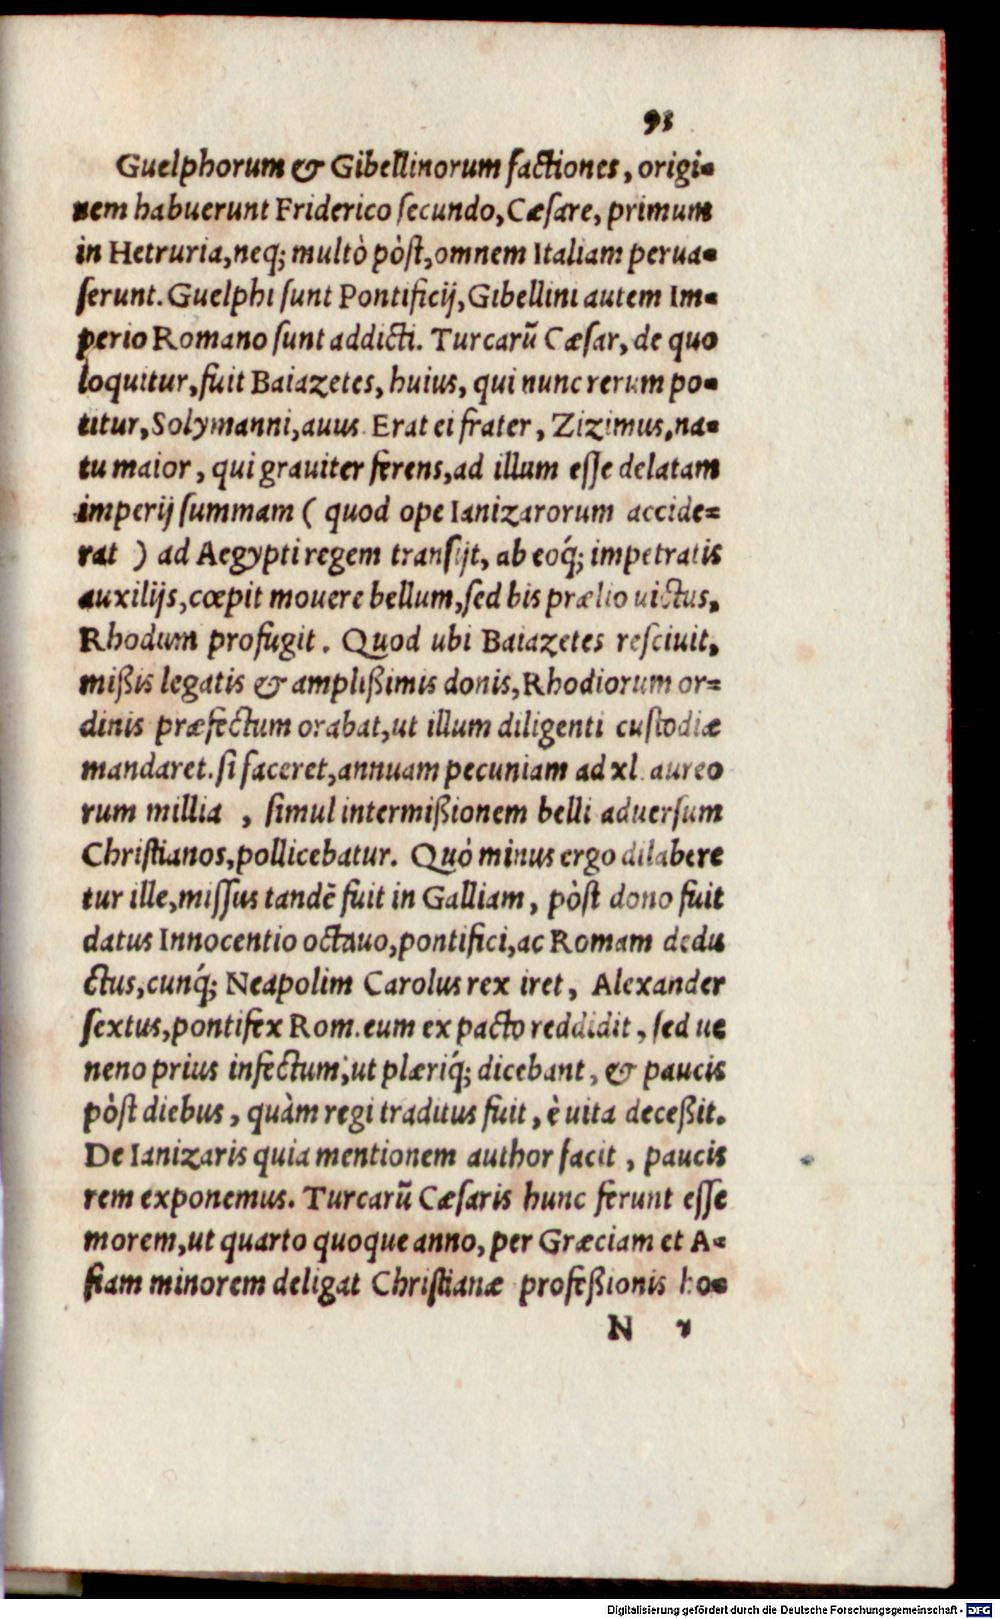 93
Guelphorum & Gibellinorum factiones, origi-
nem habuerunt Friderico secundo, Cæsare, primum
in Hetruria, neq; multò pòst, omnem Italiam perua-
serunt. Guelphi sunt Pontificij, Gibellini autem Im-
perio Romano sunt addicti. Turcarũ Cæsar, de quo
loquitur, fuit Baiazetes, huius, qui nunc rerum po-
titur, Solymanni, auus. Erat ei frater, Zizimus, na-
tu maior, qui grauiter ferens, ad illum esse delatam
imperij summam ( quod ope Ianizarorum accide-
rat ) ad Aegypti regem transijt, ab eoq́; impetratis
auxilijs, cœpit mouere bellum, sed bis prælio uictus,
Rhodum profugit. Quod ubi Baiazetes resciuit,
mißis legatis & amplißimis donis, Rhodiorum or-
dinis præfectum orabat, ut illum diligenti custodiæ
mandaret. si faceret, annuam pecuniam ad xl. aureo
rum millia , simul intermißionem belli aduersum
Christianos, pollicebatur. Quò minus ergo dilabere
tur ille, missus tandẽ fuit in Galliam, pòst dono fuit
datus Innocentio octauo, pontifici, ac Romam dedu
ctus, cunq́; Neapolim Carolus rex iret, Alexander
sextus, pontifex Rom. eum ex pacto reddidit, sed ue
neno prius infectum, ut plæriq́; dicebant, & paucis
pòst diebus, quàm regi traditus fuit, è uita deceßit.
De Ianizaris quia mentionem author facit, paucis
rem exponemus. Turcarũ Cæsaris hunc ferunt esse
morem, ut quarto quoque anno, per Græciam et A-
siam minorem deligat Christianæ profeßionis ho-
N
Digitalisierung gefördert durch die Deutsche Forschungsgemeinschaft - DFG